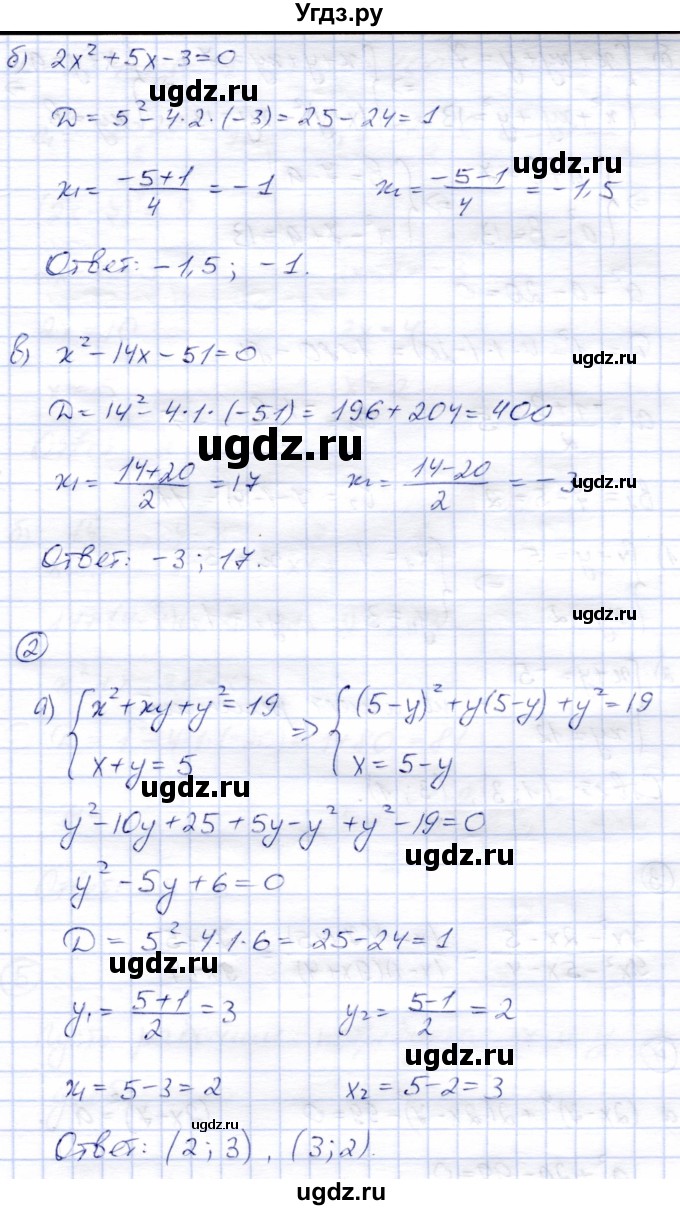 Угдз.ру
б) 2x² + 5x - 3 = 0
ugdz.ru
D = 5² - 4·2·(-3) = 25 - 24 = 1
ugdz.ru
x₁ = (-5+1)/4 = -1 x₂ = (-5-1)/4 = -1,5
Ответ: -1,5 ; -1.
в) x² - 14x - 51 = 0
ugdz.ru
D = 14² - 4·1·(-51) = 196 + 204 = 400
ugdz.ru
x₁ = (14+20)/2 = 17 x₂ = (14-20)/2 = -3
ugdz.ru
Ответ: -3 ; 17.
ugdz.ru
2
а) { x² + xy + y² = 19 ⇒ { (5-y)² + y(5-y) + y² = 19
x + y = 5 x = 5 - y
ugdz.ru
y² - 10y + 25 + 5y - y² + y² - 19 = 0
ugdz.ru
y² - 5y + 6 = 0
D = 5² - 4·1·6 = 25 - 24 = 1
ugdz.ru
y₁ = (5+1)/2 = 3 y₂ = (5-1)/2 = 2
ugdz.ru
x₁ = 5 - 3 = 2 x₂ = 5 - 2 = 3
ugdz.ru
Ответ: (2; 3), (3; 2).
ugdz.ru